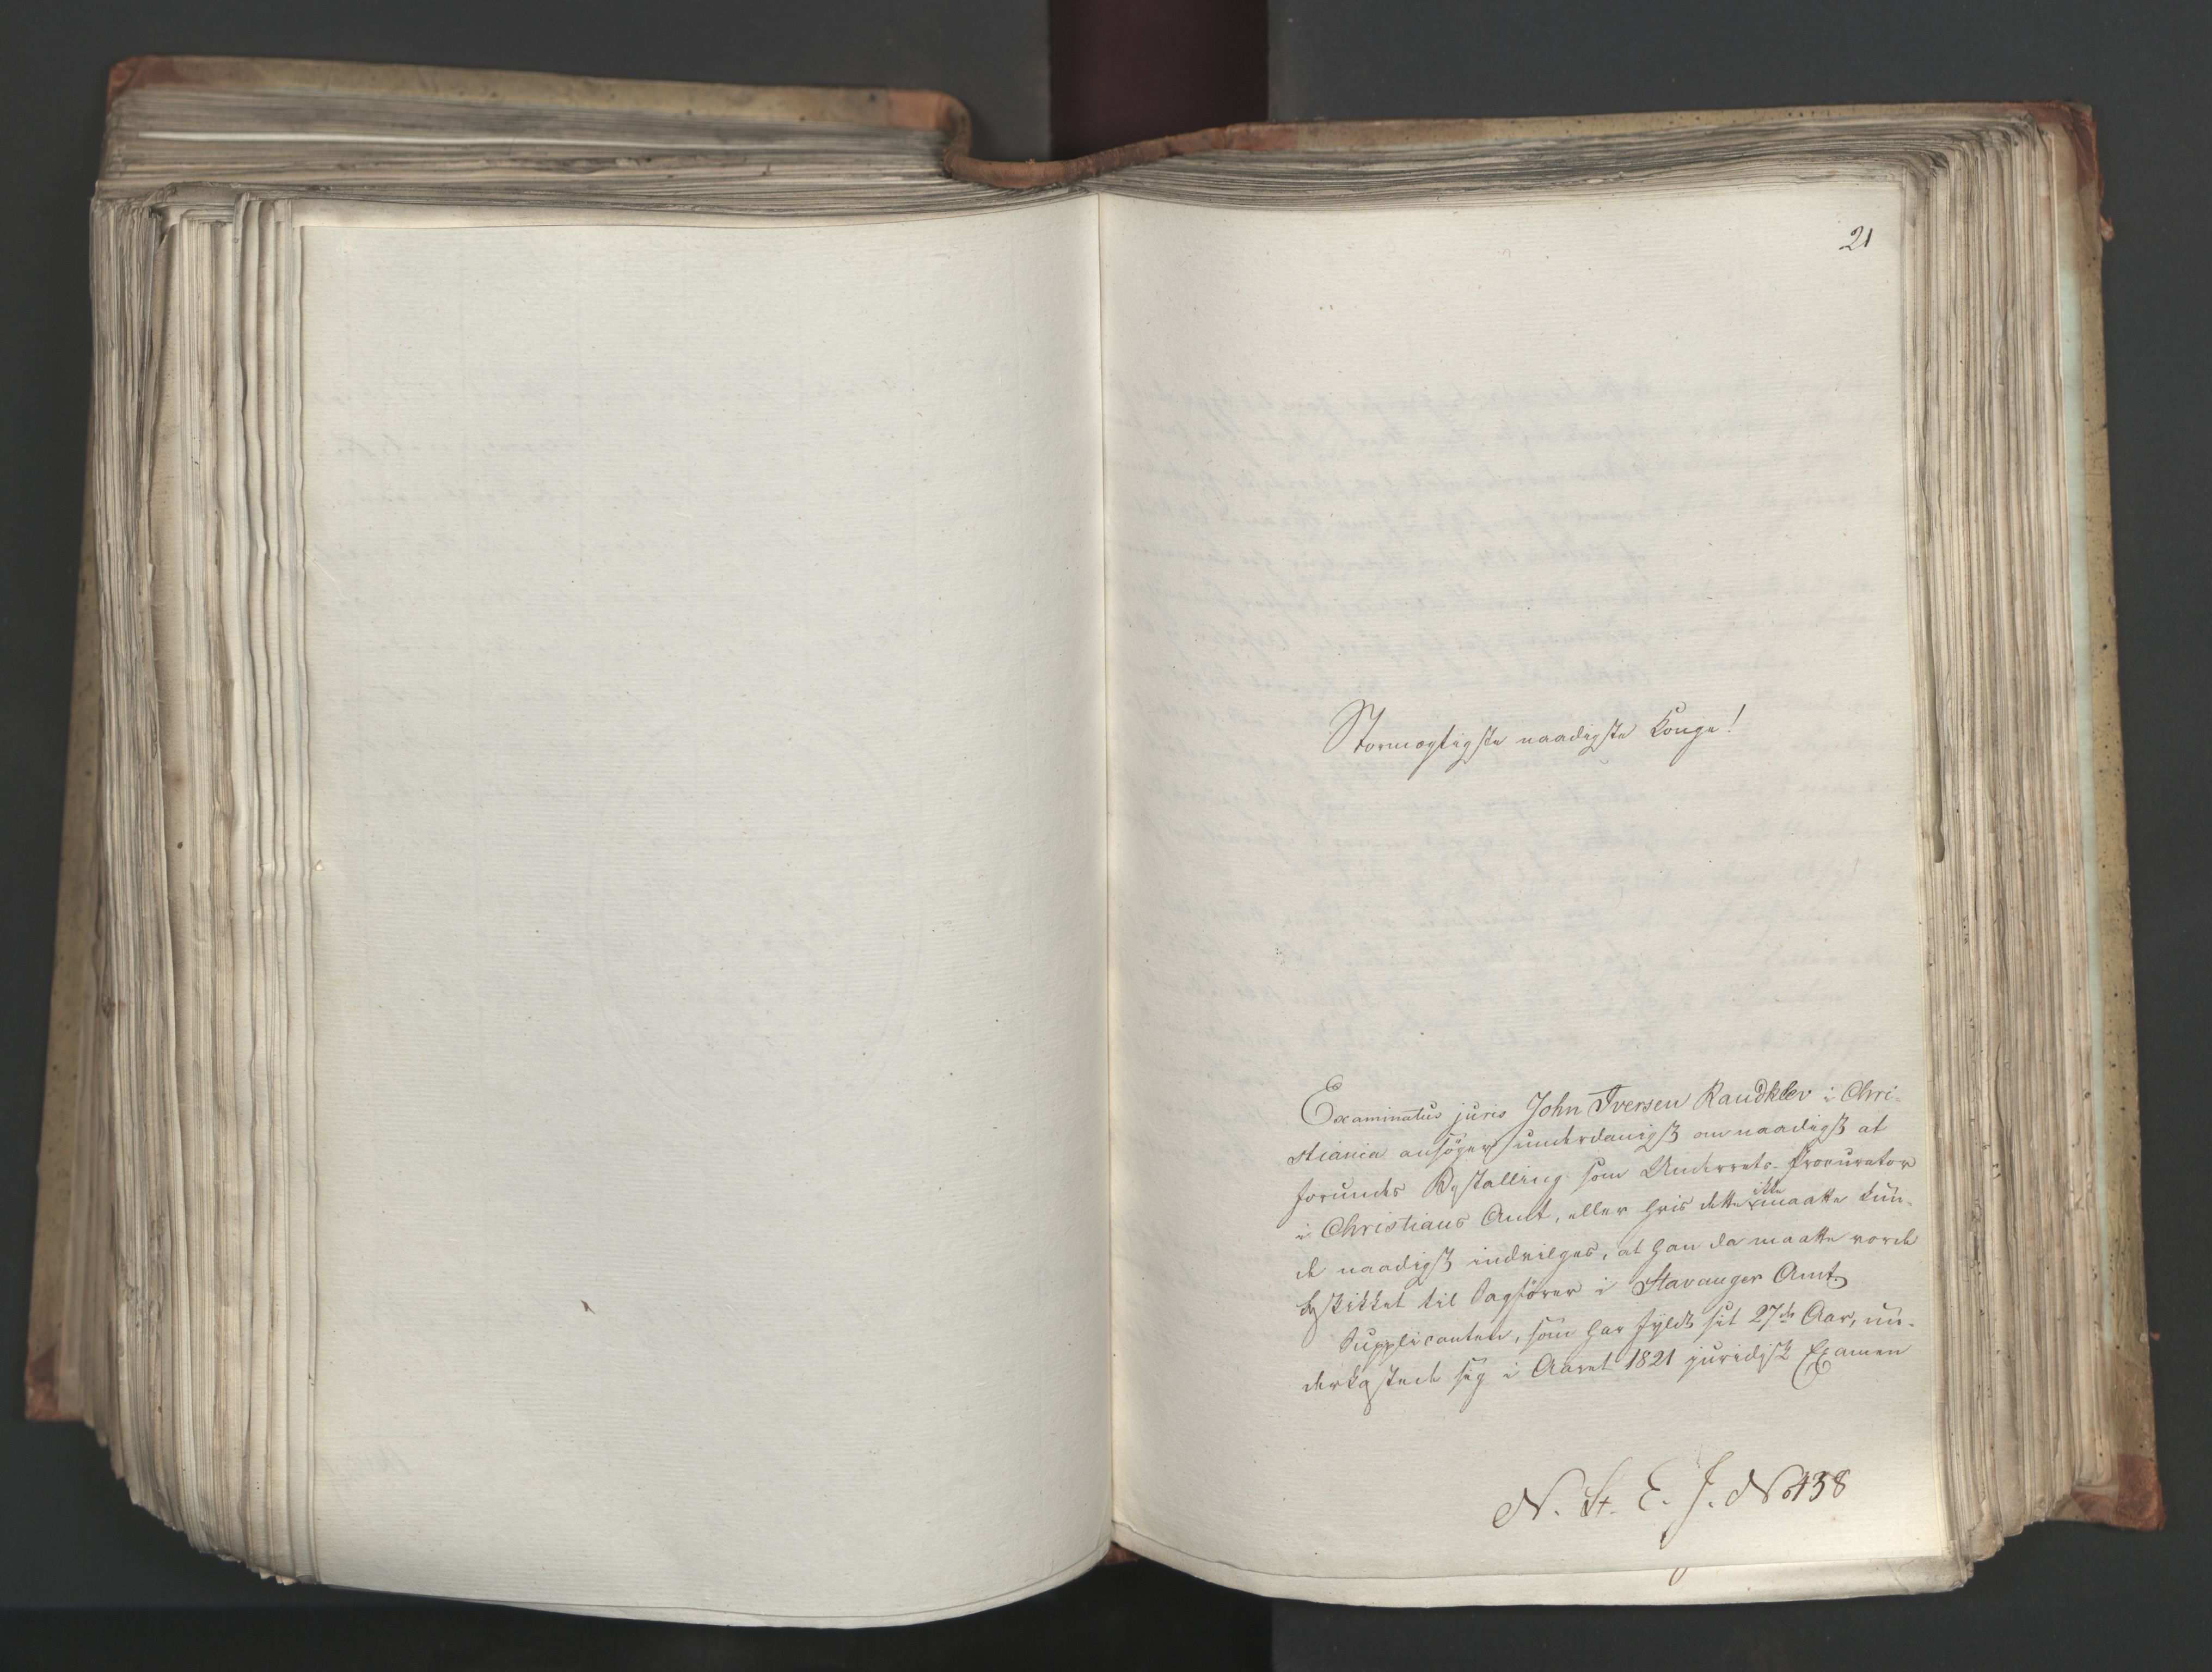 21
Stormægtigste naadigste Konge!
Examinatus juris John Iversen Raudklev i Chri-
stiania ansöger underdanigst om naadigst at
forundes Bestalling som Underrets-Procurator
i Christians Amt, eller hvis dette ikke maatte kun-
de naadigst indvilges, at han da maatte vorde
beskikket til Sagförer i Stavanger Amt.
Supplicanten, som har fyldt sit 27de Aar, un-
derkastede sig i Aaret 1821 juridisk Examen
N. St. E. J. No 438